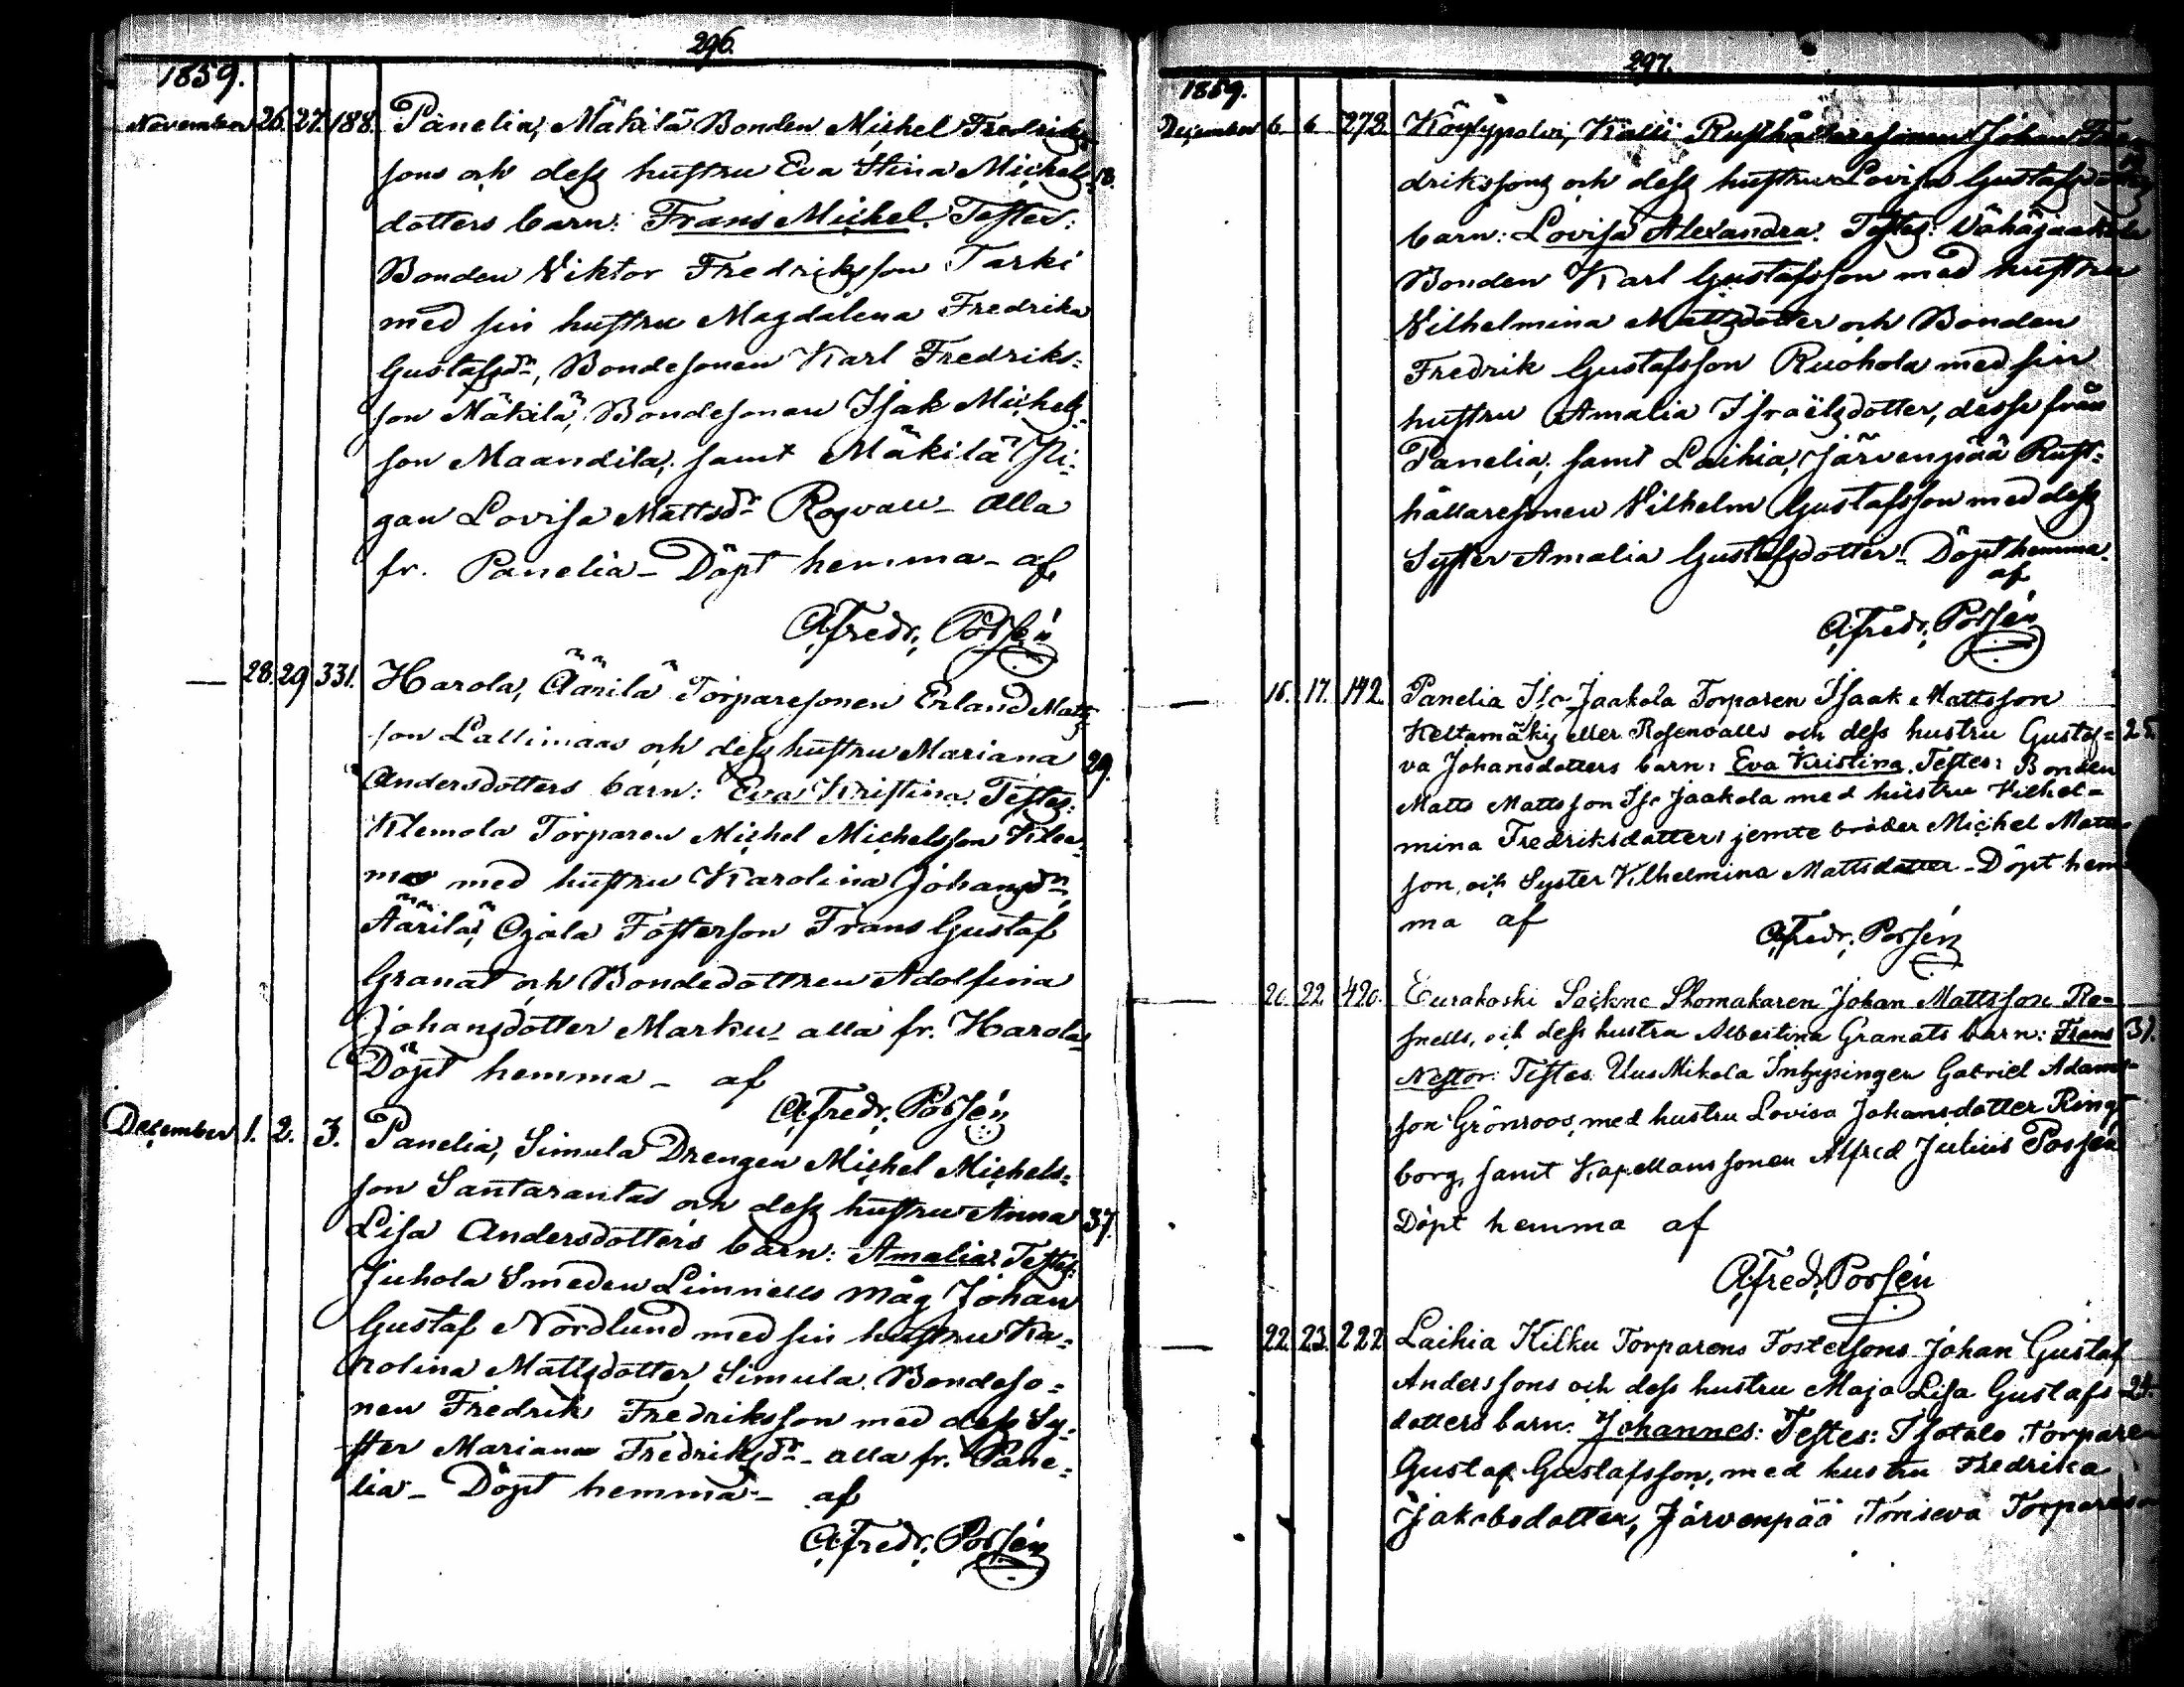 296.
1859.
November 26. 27. 188. Panelia, Mäkilä Bonden Michel Fredriks-
sons och dess hustru Eva Stina Michels- 18.
dotters barn: Frans Michel. Testes:
Bonden Viktor Fredriksson Tarki
med sin hustru Magdalena Fredrika
Gustafsdr, Bondesonen Karl Fredriks-
son Mäkilä, Bondesonen Isak Michels-
son Maandila, samt Mäkilä Pi-
gan Lovisa Mattsdr Rosvall - Alla
fr. Panelia - Döpt hemma - af
A. Fredr. Porsén
— 28. 29 331. Harola, Äärilä Torparesonen Erland Matts-
son Lallimaas och dess hustru Mariana 29.
Andersdotters barn: Eva Kristina. Testes:
Klemola Torparen Michel Michelsson
med hustru Karolina Johansdr,
Äärilä, Ojala Fosterson Frans Gustaf
Granat och Bondedottren Adolfina
Johansdotter Marku - alla fr. Harola
Döpt hemma - af
A. Fredr. Porsén
December 1. 2. 3. Panelia, Simula Drengen Michel Michels-
son Santarantas och dess hustru Anna 37.
Lisa Andersdotters barn: Amalia. Testes:
Juhola Smeden Limnells måg Johan
Gustaf Nordlund med sin hustru Ka-
rolina Mattsdotter, Simula Bondeso-
nen Fredrik Fredriksson med dess Sy-
ster Mariana Fredriksdr - alla fr. Pane-
lia - Döpt hemma - af
A. Fredr. Porsén
297.
1859.
December 6. 6. 273. Köyliypolvi, Kalli Rusthållaresonen Johan Fre-
drikssons och dess hustru Lovisa Gustafsdotters
barn: Lovisa Alexandra. Testes: Vähäjaakola
Bonden Karl Gustafsson med hustru
Vilhelmina Mattsdotter och Bonden
Fredrik Gustafsson Ruohola med sin
hustru Amalia Israëlsdotter, desse från
Panelia, samt Laihia, Järvenpää Rust-
hållaresonen Vilhelm Gustafsson med dess
Syster Amalia Gustafsdotter - Döpt hemma.
af
A. Fredr. Porsén
— 16. 17. 142. Panelia Iso-Jaakola Torparen Isaak Mattsson
Keltamäkis eller Rosenvalls och dess hustru Gusta- 25
va Johansdotters barn: Eva Kristina. Testes: Bonden
Matts Mattsson Iso Jaakola med hustru Vilhel-
mina Fredriksdotter, jemte broder Michel Matts-
son, och Syster Vilhelmina Mattsdotter - Döpt hem-
ma af
A. Fredr. Porsén
— 20. 22. 420. Eurakoski Sockne Skomakaren Johan Mattsson Re-
snells, och dess hustru Albertina Granats barn: Frans 31.
Nestor: Testes. Uus Mikola Inhysingen Gabriel Adams-
son Grönroos, med hustru Lovisa Johansdotter Ring-
borg, samt Kapellans sonen Alfred Julius Porsén
Döpt hemma af
A. Fredr. Porsén
— 22. 23. 222 Laihia Kilku Torparens Fostersons Johan Gustaf
Anderssons och dess hustru Maja Lisa Gustafs- 24
dotters barn: Johannes: Testes: Isotalo Torparen
Gustaf Gustafsson, med hustru Fredrika
Jakobsdotter, Järvenpää